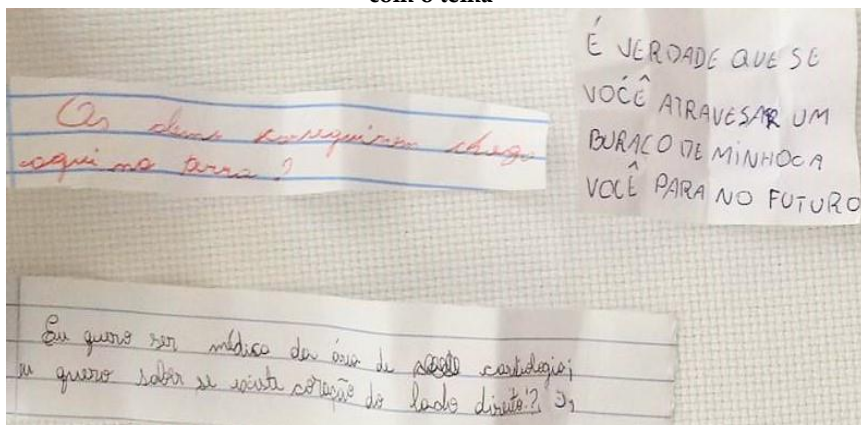 com o tema
Os deus conseguiram chega
aqui na terra?
É VERDADE QUE SE
VOCÊ ATRAVESAR UM
BURACO DE MINHOCA
VOCÊ PARA NO FUTURO
Eu quero ser médico da área de cardiologia;
eu quero saber se existe coração do lado direito?